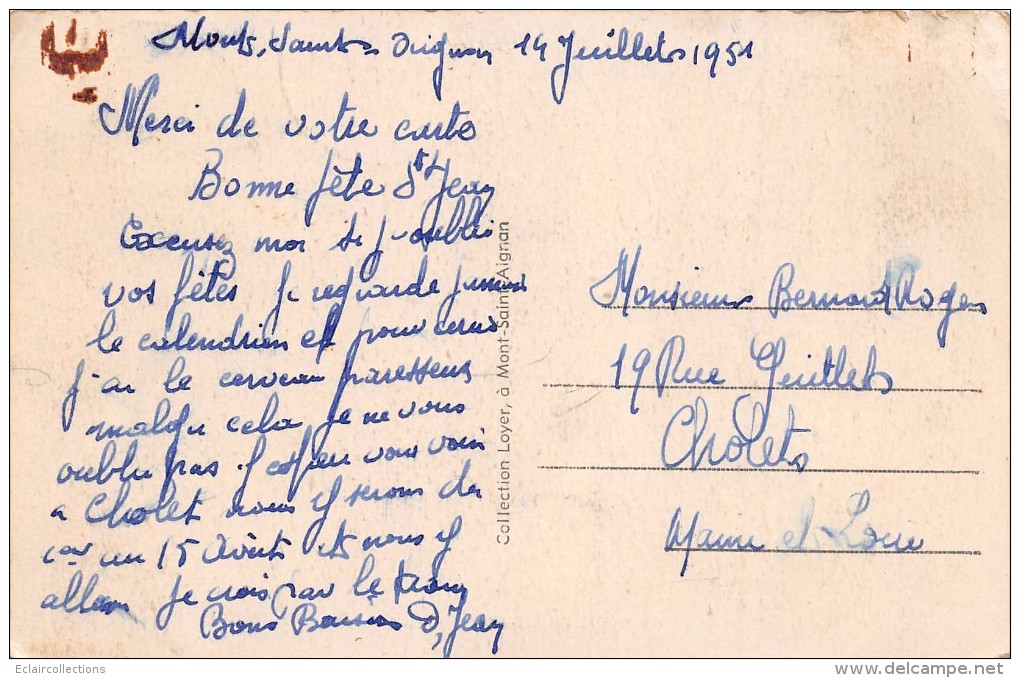 Monts, Saints Aignan 14 Juillets 1951
Merci de votre carte
Bonne fête St Jean
Excusez moi si j'oublie
vos fêtes je regarde jamais
le calendrier et pour cerus
j'ai le cerveau paresseux
malgu cela je ne vous
oublu pas j'espere vous voir
a Cholet nous y serons
car un 15 Août et nous y
allons je crois par le
Bons Baisers d, Jean
Collection Loyer, à Mont-Saint-Aignan
Monsieur Bernard Roger
19 Rue Guillets
Cholets
Maine et Loire
Eclaircollections
www.delcampe.net